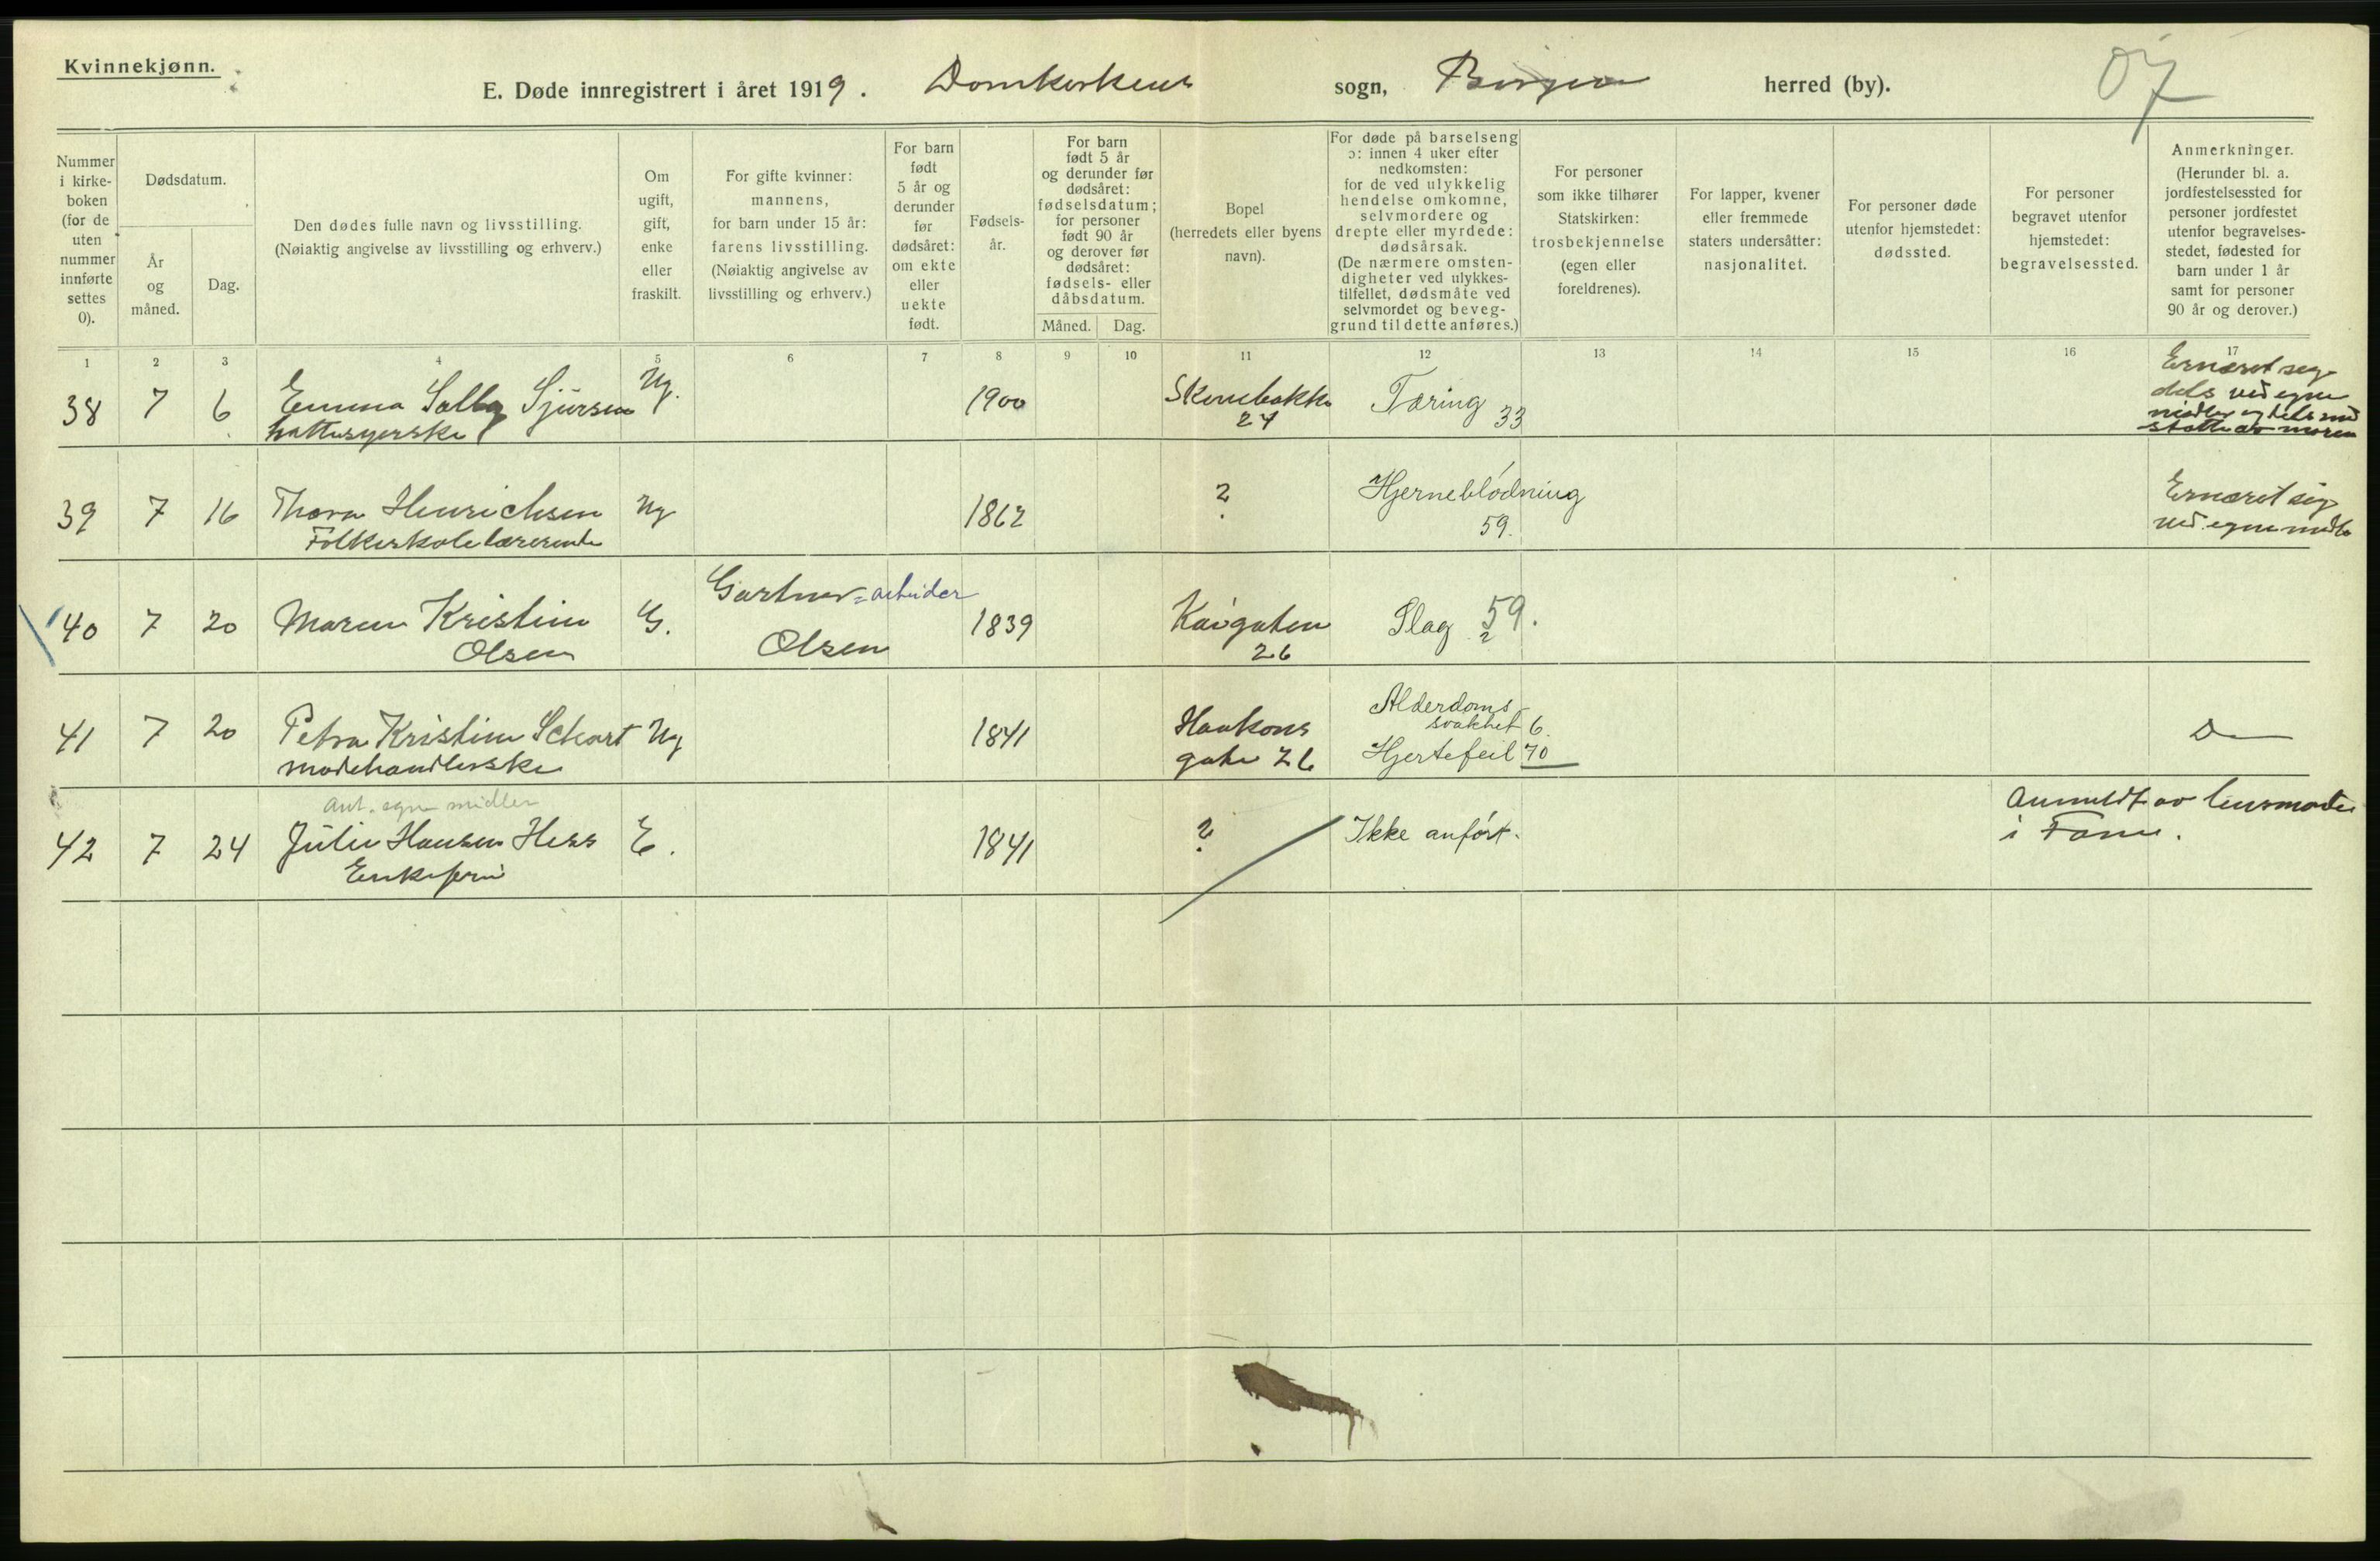 Kvinnekjønn.
E. Døde innregistrert i året 1919. Domkirkens sogn, Bergen herred (by).
07
Nummer i kirke-boken (for de uten nummer innførte settes 0).
Dødsdatum.
År og måned.
Dag.
Den dødes fulle navn og livsstilling.
(Nøiaktig angivelse av livsstilling og erhverv.)
Om ugift, gift, enke eller fraskilt.
For gifte kvinner: mannens, for barn under 15 år: farens livsstilling.
(Nøiaktig angivelse av livsstilling og erhverv.)
For barn født 5 år og derunder før dødsåret: om ekte eller uekte født.
Fødsels-år.
For barn født 5 år og derunder før dødsåret: fødselsdatum; for personer født 90 år og derover før dødsåret: fødsels- eller dåbsdatum.
Måned. Dag.
Bopel
(herredets eller byens navn).
For døde på barselseng ɔ: innen 4 uker efter nedkomsten: for de ved ulykkelig hendelse omkomne, selvmordere og drepte eller myrdede: dødsårsak.
(De nærmere omsten-digheter ved ulykkes-tilfellet, dødsmåte ved selvmordet og beveg-grund til dette anføres.)
For personer som ikke tilhører Statskirken: trosbekjennelse
(egen eller foreldrenes).
For lapper, kvener eller fremmede staters undersåtter: nasjonalitet.
For personer døde utenfor hjemstedet: dødssted.
For personer begravet utenfor hjemstedet: begravelsessted.
Anmerkninger.
(Herunder bl. a. jordfestelsessted for personer jordfestet utenfor begravelses-stedet, fødested for barn under 1 år samt for personer 90 år og derover.)
1 2 3 4 5 6 7 8 9 10 11 12 13 14 15 16 17
38 7 6 Emma Solby Sjursen Ug. 1900 Tæring 33 Ernæret seg
hattesyerske 24 dels ved egne
midler og dels med
støtte av moren
39 7 16 Thora Henrichsen Ug 1862 ? Hjerneblødning Ernæret sig
Folkeskolelærerinde 59. ved egne midler
40 7 20 Maren Kristine G. Gartner=arbeider 1839 Kaigaten Slag 59.
Olsen Olsen 26 2
41 7 20 Petra Kristine Ug 1841 Haakons Alderdoms- Do
svakhet 6.
modehandlerske gate 26 Hjertefeil 70
Ant. egne midler
42 7 24 Julie Hansen Hess E. 1841 ? Ikke anført. Anmeldt av lensmanden
Enkefrue i Fane.